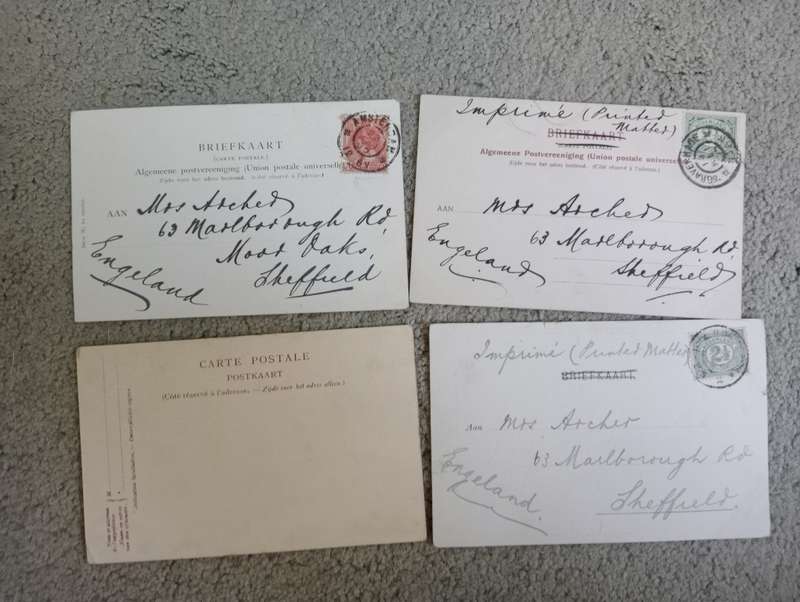 BRIEFKAART
(CARTE POSTALE.)
Algemeene postvereeniging (Union postale universelle)
Zijde voor het adres bestemd. (Côté réservé à l'adresse).
AMSTERDAM
AAN Mrs Archer
63 Marlborough Rd,
Moor Oaks,
Sheffield
Engeland
Imprimé (Printed
Matter)
BRIEFKAART
Algemeene Postvereeniging (Union postale universelle)
(Zijde voor het adres bestemd. (Côté réservé à l'adresse).
AAN Mrs Archer
63 Marlborough Rd,
Sheffield
Engeland
CARTE POSTALE
POSTKAART
(Côté réservé à l'adresse. — Zijde voor het adres alleen.)
Imprimé (Printed Matter
BRIEFKAART
2½
Aan Mrs Archer
63 Marlborough Rd
Sheffield.
Engeland.